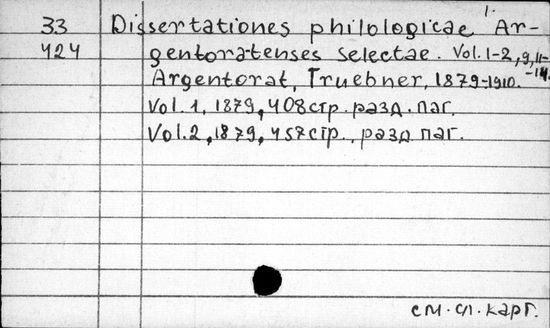 33 Dissertationes philologicae Ar-
424 gentoratenses selectae. Vol. 1-2, 9, 11-
Argentorat, Truebner, 1879-1910. -14.
Vol. 1, 1879, 408 стр. разд. паг.
Vol. 2, 1879, 457 стр., разд паг.
см. сл. карт.